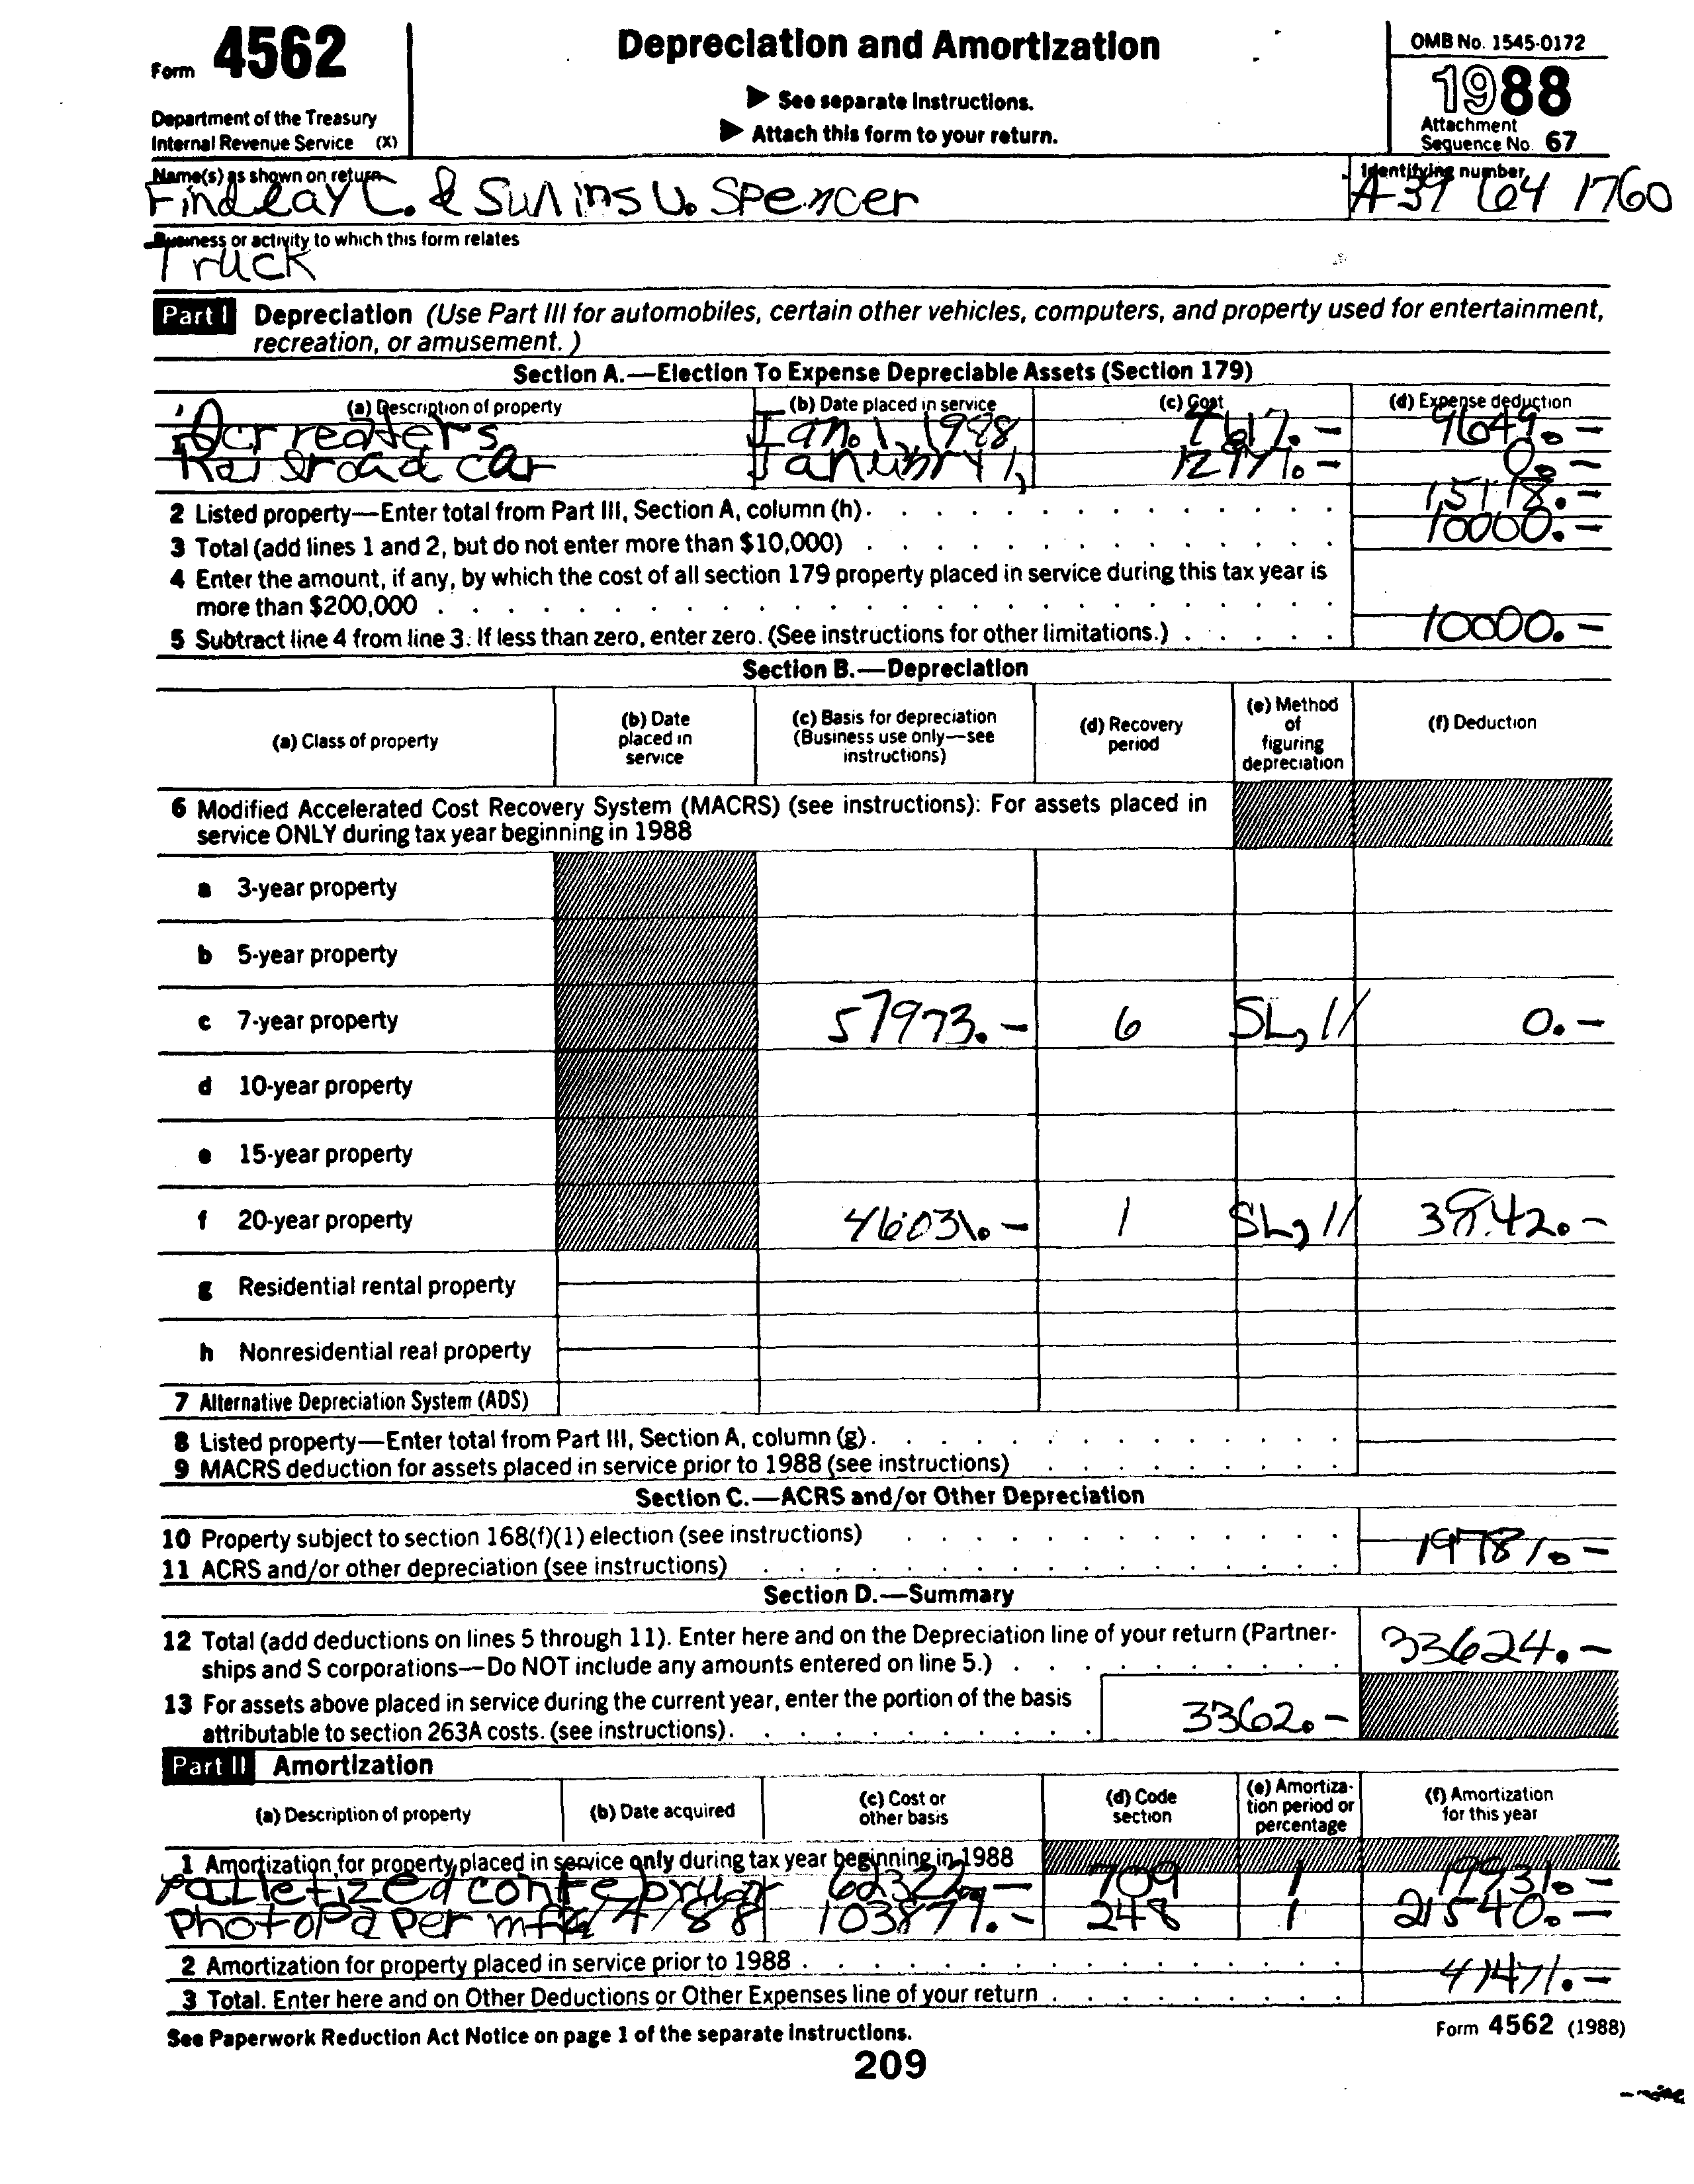 Form 4562
Department of the Treasury
Internal Revenue Service (X)
Depreciation and Amortization
▶ See separate Instructions.
▶ Attach this form to your return.
OMB No. 1545-0172
1988
Attachment
Sequence No. 67
Name(s) as shown on return
Findlay C. & Sunins U. Spencer
Identifying number
A-39 604 1760
Business or activity to which this form relates
Truck
Part I Depreciation (Use Part III for automobiles, certain other vehicles, computers, and property used for entertainment,
recreation, or amusement. )
Section A.—Election To Expense Depreciable Assets (Section 179)
(a) Description of property (b) Date placed in service (c) Cost (d) Expense deduction
1 Ocr readers Jan. 1, 1988 7617.- 9649.-
Railroad car January 1, 12971.- 0.-
2 Listed property—Enter total from Part III, Section A, column (h). 15118.-
3 Total (add lines 1 and 2, but do not enter more than $10,000) 10000.-
4 Enter the amount, if any, by which the cost of all section 179 property placed in service during this tax year is
more than $200,000
5 Subtract line 4 from line 3. If less than zero, enter zero. (See instructions for other limitations.) 10000.-
Section B.—Depreciation
(a) Class of property
(b) Date
placed in
service
(c) Basis for depreciation
(Business use only—see
instructions)
(d) Recovery
period
(e) Method
of
figuring
depreciation
(f) Deduction
6 Modified Accelerated Cost Recovery System (MACRS) (see instructions): For assets placed in
service ONLY during tax year beginning in 1988
a 3-year property
b 5-year property
c 7-year property 57973.- 6 SL, 11 0.-
d 10-year property
e 15-year property
f 20-year property 46031.- 1 SL, 11
g Residential rental property
h Nonresidential real property
7 Alternative Depreciation System (ADS)
8 Listed property—Enter total from Part III, Section A, column (g).
9 MACRS deduction for assets placed in service prior to 1988 (see instructions)
Section C.—ACRS and/or Other Depreciation
10 Property subject to section 168(f)(1) election (see instructions)
11 ACRS and/or other depreciation (see instructions) 19781.-
Section D.—Summary
12 Total (add deductions on lines 5 through 11). Enter here and on the Depreciation line of your return (Partner-
ships and S corporations—Do NOT include any amounts entered on line 5.) 33624.-
13 For assets above placed in service during the current year, enter the portion of the basis
attributable to section 263A costs. (see instructions). 3362.-
Part II Amortization
(a) Description of property (b) Date acquired
(c) Cost or
other basis
(d) Code
section
(e) Amortiza-
tion period or
percentage
(f) Amortization
for this year
1 Amortization for property placed in service only during tax year beginning in 1988
Palletized cont 62322.- 709 1 19931.-
Photopaper mfg 103877.- 248 1 21540.-
2 Amortization for property placed in service prior to 1988
3 Total. Enter here and on Other Deductions or Other Expenses line of your return 41471.-
See Paperwork Reduction Act Notice on page 1 of the separate instructions.
Form 4562 (1988)
209